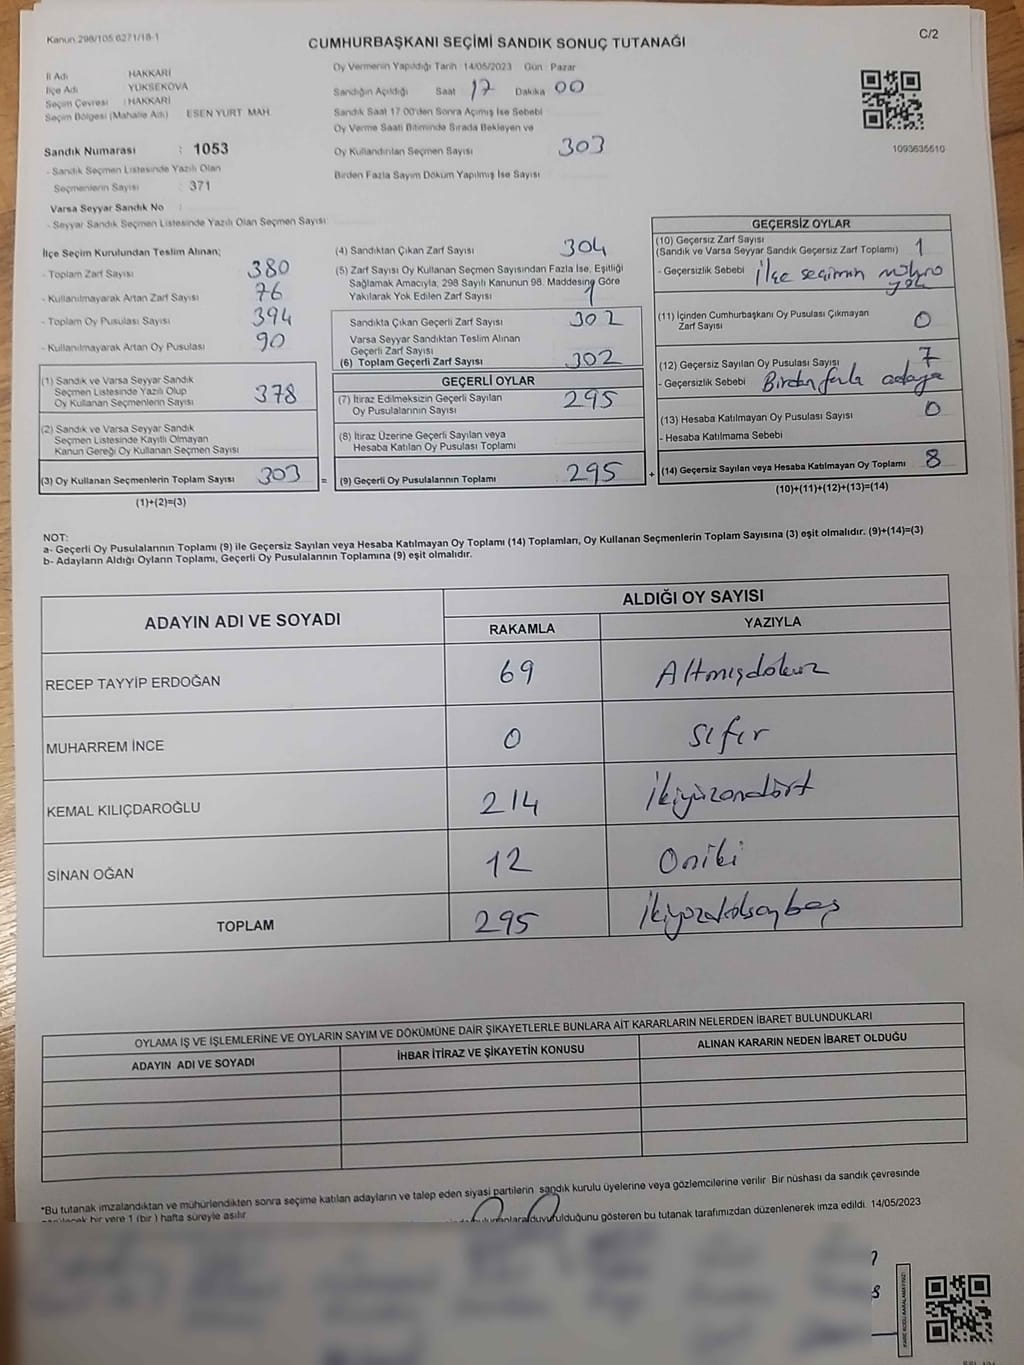 Kanun 298/105 6271/18-1
C/2
CUMHURBAŞKANI SEÇİMİ SANDIK SONUÇ TUTANAĞI
İl Adı HAKKARİ
İlçe Adı YÜKSEKOVA
Seçim Çevresi : HAKKARİ
Seçim Bölgesi (Mahalle Adı) ESEN YURT MAH.
Oy Vermenin Yapıldığı Tarih 14/05/2023 Gün : Pazar
Sandığın Açıldığı Saat 17 Dakika 00
Sandık Saat 17 00'den Sonra Açımış İse Sebebi
Oy Verme Saati Bitiminde Sırada Bekleyen ve
Oy Kullandırılan Seçmen Sayısı 303
Birden Fazla Sayım Döküm Yapılmış İse Sayısı
1093635510
Sandık Numarası : 1053
- Sandık Seçmen Listesinde Yazılı Olan
Seçmenlerin Sayısı : 371
Varsa Seyyar Sandık No
- Seyyar Sandık Seçmen Listesinde Yazılı Olan Seçmen Sayısı
İlçe Seçim Kurulundan Teslim Alınan;
- Toplam Zarf Sayısı 380
- Kullanılmayarak Artan Zarf Sayısı 76
- Toplam Oy Pusulası Sayısı 394
- Kullanılmayarak Artan Oy Pusulası 90
(1) Sandık ve Varsa Seyyar Sandık
Seçmen Listesinde Yazılı Olup
Oy Kullanan Seçmenlerin Sayısı 378
(2) Sandık ve Varsa Seyyar Sandık
Seçmen Listesinde Kayıtlı Olmayan
Kanun Gereği Oy Kullanan Seçmen Sayısı
(3) Oy Kullanan Seçmenlerin Toplam Sayısı 303 =
(1)+(2)=(3)
(4) Sandıktan Çıkan Zarf Sayısı 304
(5) Zarf Sayısı Oy Kullanan Seçmen Sayısından Fazla İse, Eşitliği
Sağlamak Amacıyla, 298 Sayılı Kanunun 98. Maddesine Göre
Yakılarak Yok Edilen Zarf Sayısı 1
Sandıkta Çıkan Geçerli Zarf Sayısı 302
Varsa Seyyar Sandıktan Teslim Alınan
Geçerli Zarf Sayısı
(6) Toplam Geçerli Zarf Sayısı 302
GEÇERLİ OYLAR
(7) İtiraz Edilmeksizin Geçerli Sayılan
Oy Pusulalarının Sayısı 295
(8) İtiraz Üzerine Geçerli Sayılan veya
Hesaba Katılan Oy Pusulası Toplamı
(9) Geçerli Oy Pusulalarının Toplamı 295 +
GEÇERSİZ OYLAR
(10) Geçersiz Zarf Sayısı
(Sandık ve Varsa Seyyar Sandık Geçersiz Zarf Toplamı) 1
- Geçersizlik Sebebi İlçe seçimin mührü
yok
(11) İçinden Cumhurbaşkanı Oy Pusulası Çıkmayan
Zarf Sayısı 0
(12) Geçersiz Sayılan Oy Pusulası Sayısı 7
- Geçersizlik Sebebi Birden fazla adaya
(13) Hesaba Katılmayan Oy Pusulası Sayısı 0
- Hesaba Katılmama Sebebi
(14) Geçersiz Sayılan veya Hesaba Katılmayan Oy Toplamı 8
(10)+(11)+(12)+(13)=(14)
NOT:
a- Geçerli Oy Pusulalarının Toplamı (9) ile Geçersiz Sayılan veya Hesaba Katılmayan Oy Toplamı (14) Toplamları, Oy Kullanan Seçmenlerin Toplam Sayısına (3) eşit olmalıdır. (9)+(14)=(3)
b- Adayların Aldığı Oyların Toplamı, Geçerli Oy Pusulalarının Toplamına (9) eşit olmalıdır.
ADAYIN ADI VE SOYADI ALDIĞI OY SAYISI
RAKAMLA YAZIYLA
RECEP TAYYİP ERDOĞAN 69 Altmışdokuz
MUHARREM İNCE 0 Sıfır
KEMAL KILIÇDAROĞLU 214 İkiyüzondört
SİNAN OĞAN 12 Oniki
TOPLAM 295
OYLAMA İŞ VE İŞLEMLERİNE VE OYLARIN SAYIM VE DÖKÜMÜNE DAİR ŞİKAYETLERLE BUNLARA AİT KARARLARIN NELERDEN İBARET BULUNDUKLARI
ADAYIN ADI VE SOYADI İHBAR İTİRAZ VE ŞİKAYETİN KONUSU ALINAN KARARIN NEDEN İBARET OLDUĞU
*Bu tutanak imzalandıktan ve mühürlendikten sonra seçime katılan adayların ve talep eden siyasi partilerin sandık kurulu üyelerine veya gözlemcilerine verilir Bir nüshası da sandık çevresinde
bir yere 1 (bir ) hafta süreyle asılır duyurulduğunu gösteren bu tutanak tarafımızdan düzenlenerek imza edildi. 14/05/2023